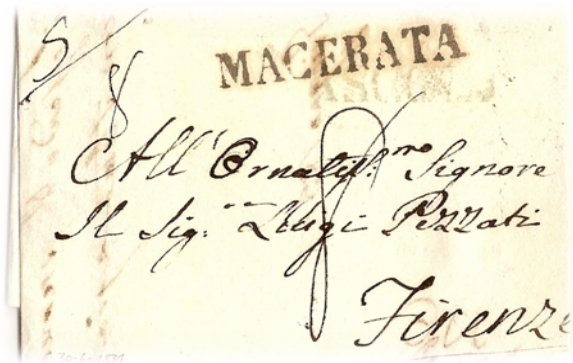 MACERATA
All' Ornatiss.mo Signore
Il Sig.r Luigi Pezzati
Firenze